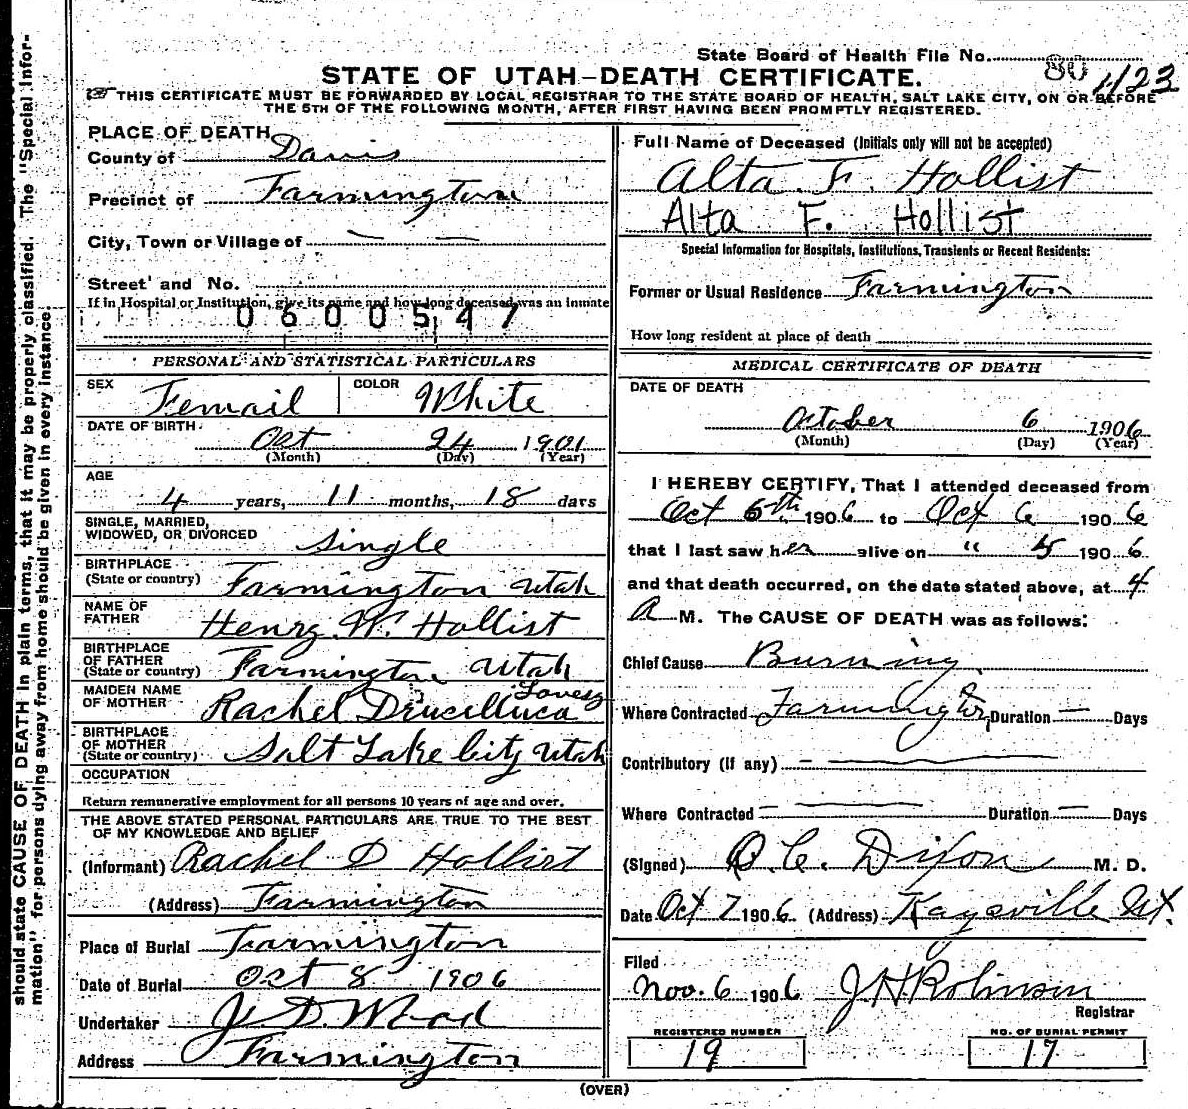 State Board of Health File No. 80 423
STATE OF UTAH—DEATH CERTIFICATE.
THIS CERTIFICATE MUST BE FORWARDED BY LOCAL REGISTRAR TO THE STATE BOARD OF HEALTH, SALT LAKE CITY, ON OR BEFORE
THE 5TH OF THE FOLLOWING MONTH, AFTER FIRST HAVING BEEN PROMPTLY REGISTERED.
PLACE OF DEATH
County of Davis
Precinct of Farmington
City, Town or Village of — —
Street and No.
If in Hospital or Institution, give its name and how long deceased was an inmate
0600547
PERSONAL AND STATISTICAL PARTICULARS
SEX Femail COLOR White
DATE OF BIRTH Oct 24 1901
(Month) (Day) (Year)
AGE
4 years, 11 months, 18 days
SINGLE, MARRIED,
WIDOWED, OR DIVORCED Single
BIRTHPLACE
(State or country) Farmington Utah
NAME OF
FATHER Henry W. Hollist
BIRTHPLACE
OF FATHER
(State or country) Farmington Utah
MAIDEN NAME
OF MOTHER Rachel
BIRTHPLACE
OF MOTHER
(State or country) Salt Lake City Utah
OCCUPATION
Return remunerative employment for all persons 10 years of age and over.
THE ABOVE STATED PERSONAL PARTICULARS ARE TRUE TO THE BEST
OF MY KNOWLEDGE AND BELIEF
(Informant) Rachel D Hollist
(Address) Farmington
Place of Burial Farmington
Date of Burial Oct 8 1906
Undertaker J. D. Wood
Address Farmington
Full Name of Deceased (Initials only will not be accepted)
Alta. F. Hollist
Alta F. Hollist
Special Information for Hospitals, Institutions, Transients or Recent Residents:
Former or Usual Residence Farmington
How long resident at place of death
MEDICAL CERTIFICATE OF DEATH
DATE OF DEATH
October 6 1906
(Month) (Day) (Year)
I HEREBY CERTIFY, That I attended deceased from
Oct 5th 1906 to Oct 6 1906
that I last saw her alive on " 5 1906
and that death occurred, on the date stated above, at 4
A M. The CAUSE OF DEATH was as follows:
Chief Cause Burning
Where Contracted Farmington Duration — Days
Contributory (if any) —
Where Contracted — Duration — Days
(Signed) O. C. Dixon M. D.
Date Oct 7 1906 (Address) Kaysville Ut.
Filed
Nov. 6 1906 J H Robinson
Registrar
REGISTERED NUMBER NO. OF BURIAL PERMIT
19 17
(OVER)
should state CAUSE OF DEATH in plain terms, that it may be properly classified. The "Special Infor-
mation" for persons dying away from home should be given in every instance.